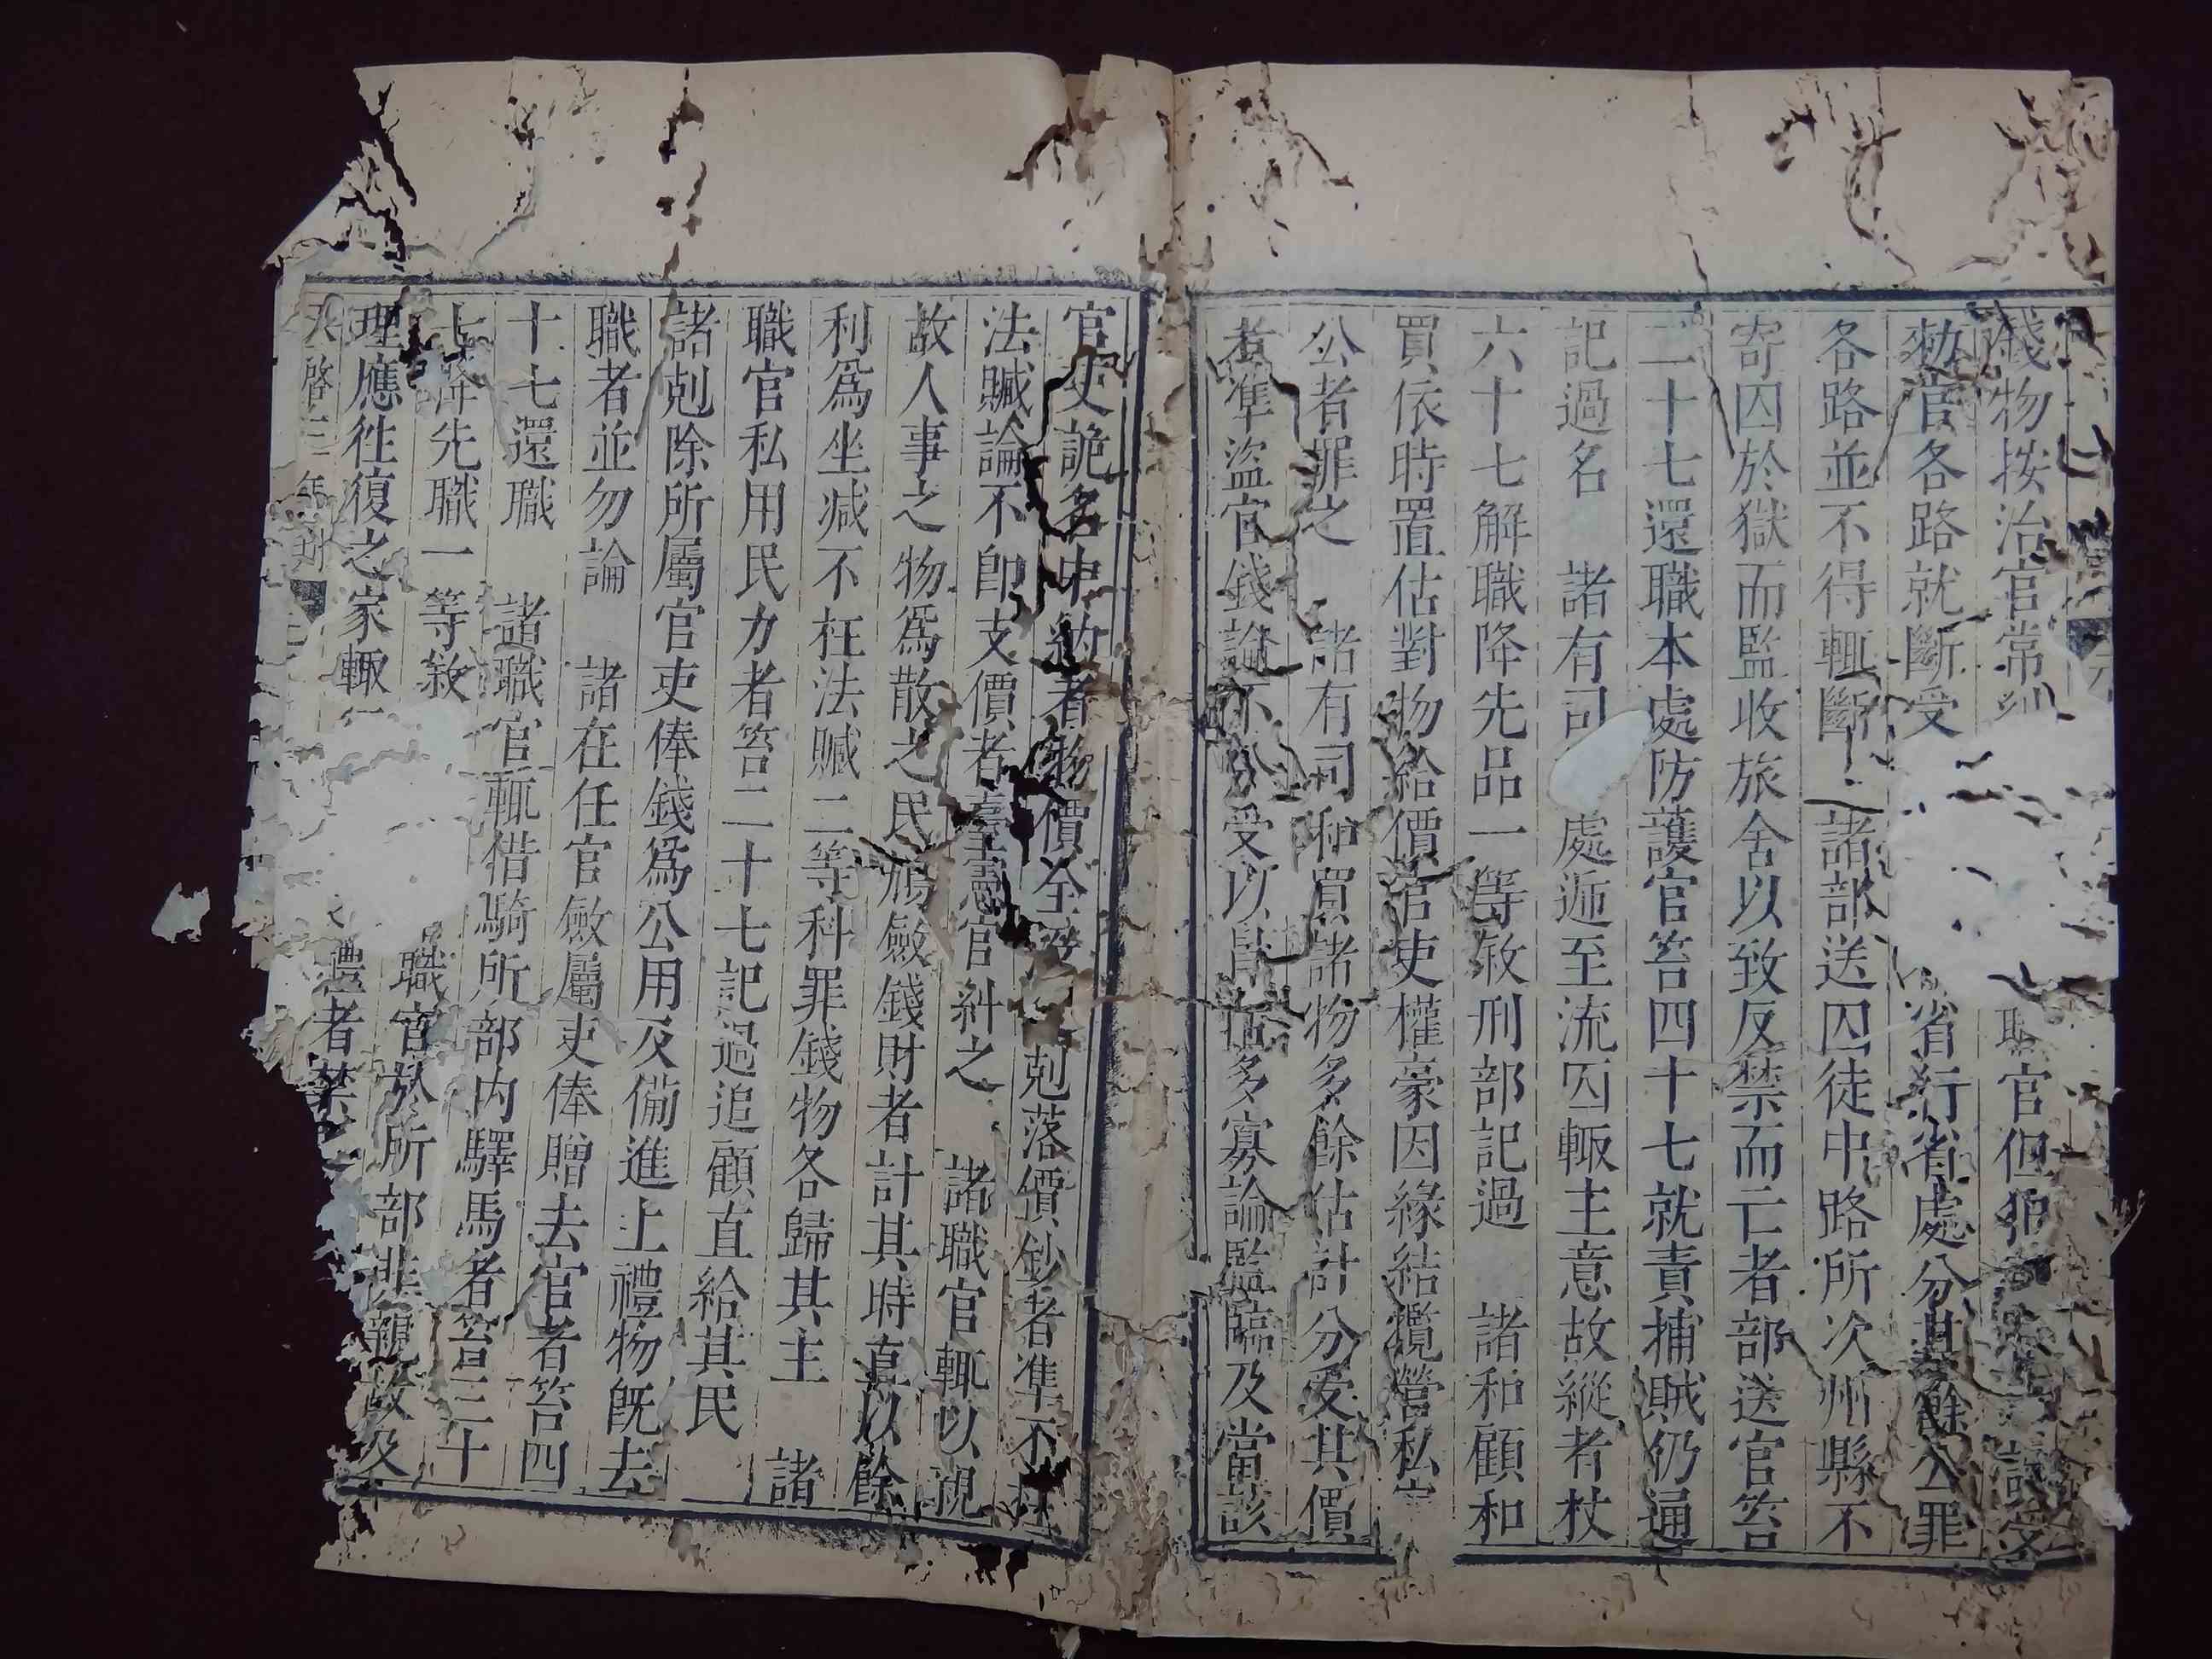 錢物按治官常糾 職官但犯 受
勑官各路就斷受 省行省處分其餘公罪
各路並不得輒斷 諸部送囚徒中路所次州縣不
寄囚於獄而監收旅舍以致反禁而亡者部送官笞
二十七還職本處防護官笞四十七就責捕賊仍通
記過名 諸有司 處遞至流囚輒主意故縱者杖
六十七解職降先品一等敘刑部記過 諸和顧和
買依時置估對物給價官吏權豪因緣結攬營私
公者罪之 諸有司和買諸物多餘估計分受其價
者準盜官錢論不分受以 多寡論監臨及當該
官吏詭名中納者物價全 剋落價鈔者準不枉
法贓論不即支價者臺憲官糾之 諸職官輒以親
故人事之物爲散之民鳩斂錢財者計其時直以餘
利爲坐减不枉法贓二等科罪錢物各歸其主 諸
職官私用民力者笞二十七記過追顧直給其民
諸剋除所屬官吏俸錢爲公用及備進上禮物既去
職者並勿論 諸在任官斂屬吏俸贈去官者笞四
十七還職 諸職官輒借騎所部内驛馬者笞三十
七降先職一等敘 職官於所部非親故及
理應徃復之家輒 禮者禁
天啓三年刊